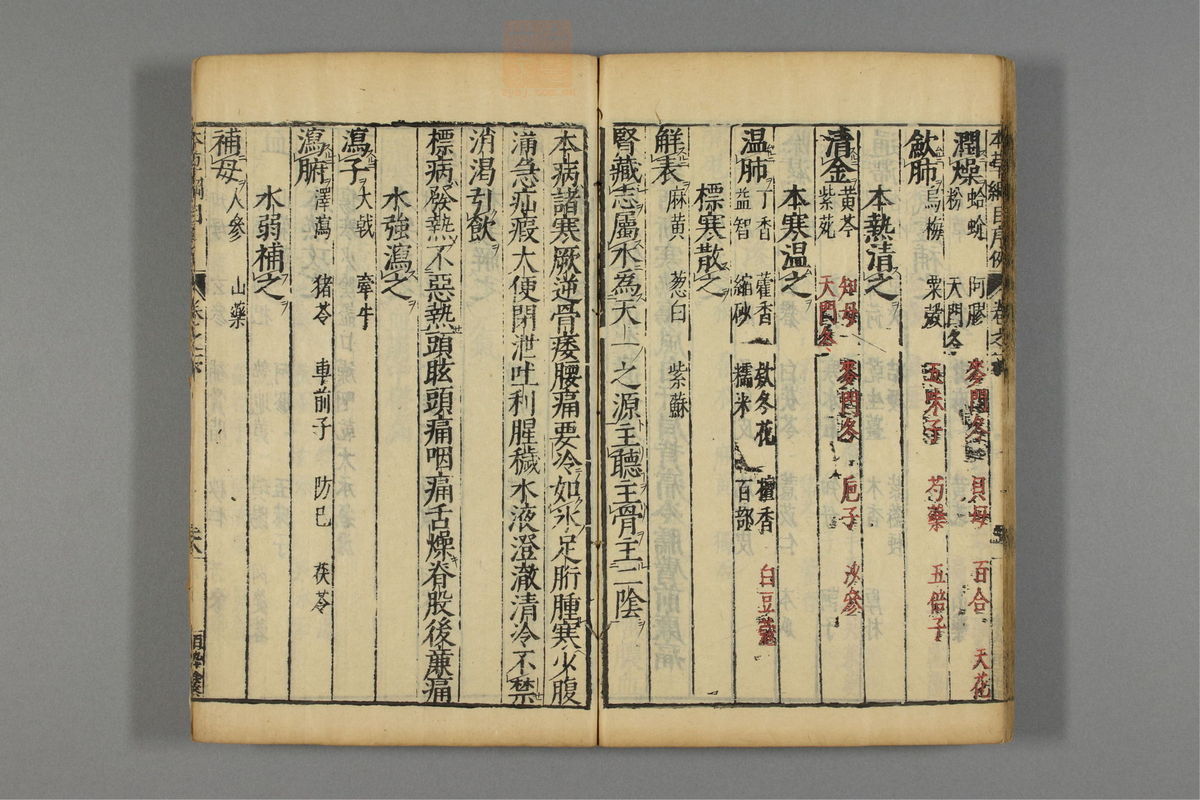 潤燥 蛤蚧 阿膠 麥門冬 貝母 百合 天花
粉 天門冬
斂肺 烏梅 粟殼 五味子 芍藥 五倍子
本熱清之
清金 黃芩 知母 麥門冬 梔子 沙參
紫菀 天門冬
本寒温之
温肺 丁香 藿香 欵冬花 檀香 白豆蔻
益智 縮砂 糯米 百部
標寒散之
解表 麻黃 葱白 紫蘇
腎藏志屬水為天一之源主聽主骨主二陰
本病諸寒厥逆骨痿腰痛要冷如氷足胻腫寒少腹
滿急疝瘕大便閉泄吐利腥穢水液澄澈清冷不禁
消渴引飲
標病發熱不惡熱頭眩頭痛咽痛舌燥脊股後廉痛
水強瀉之
瀉子 大戟 牽牛
瀉腑 澤瀉 猪苓 車前子 防已 茯苓
水弱補之
補母 人參 山藥